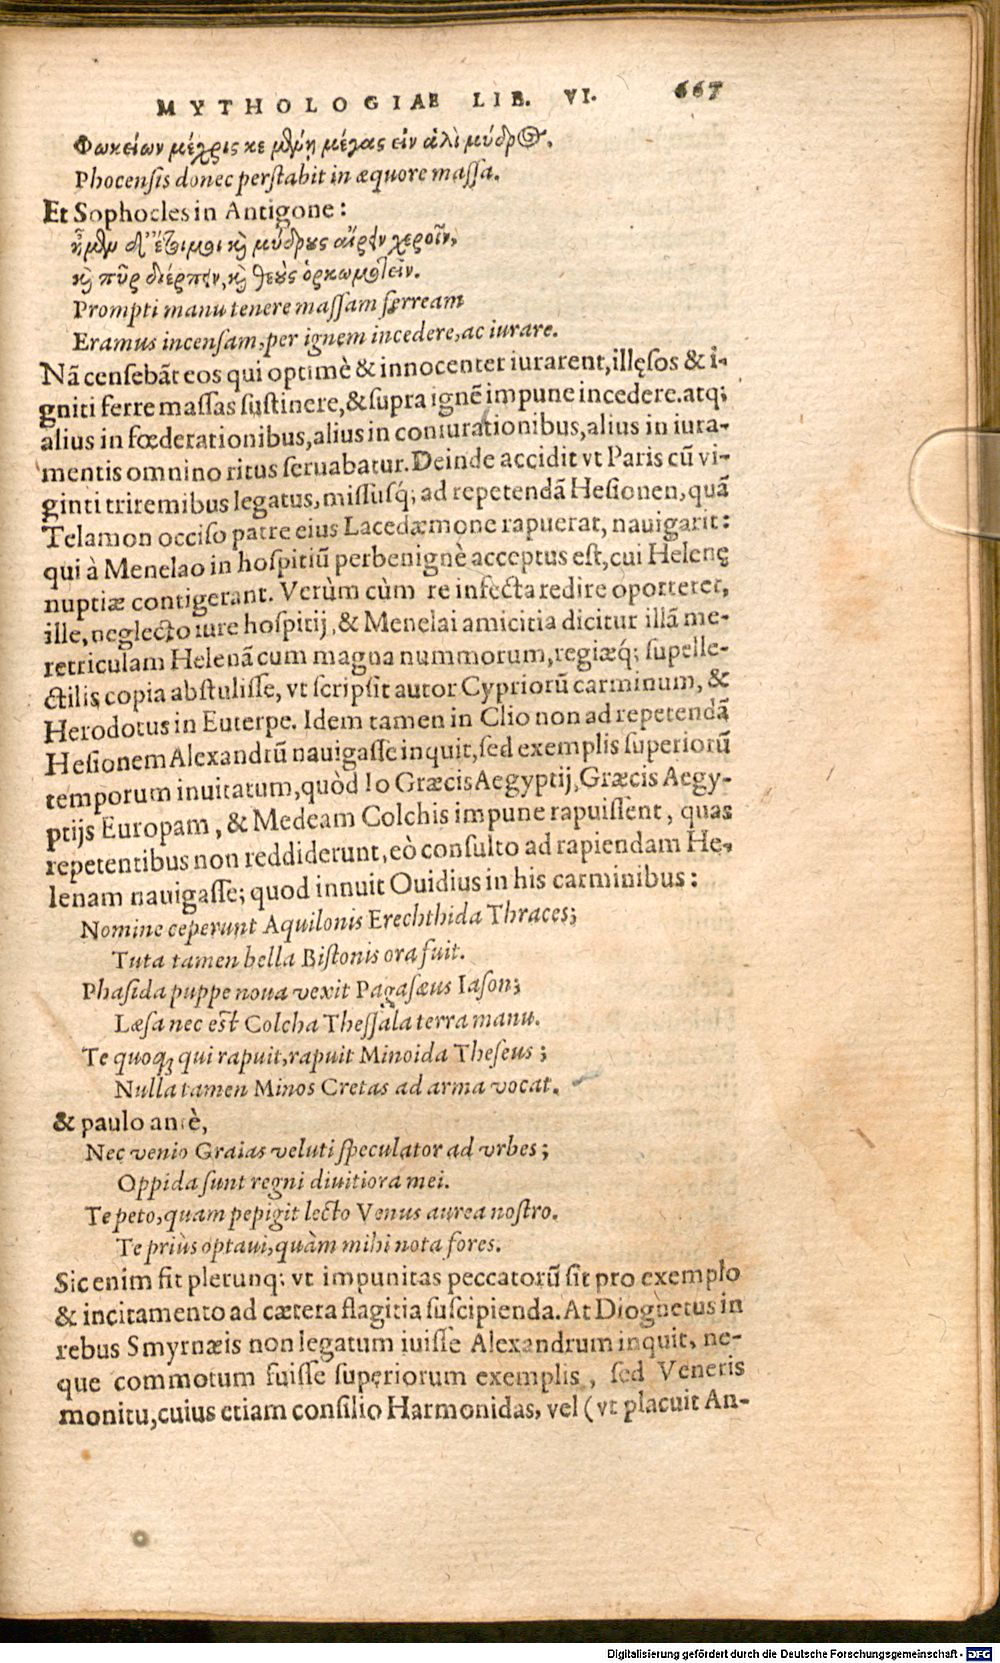 MYTHOLOGIAE LIB. VI. 667
Φωκείων μέχρις κε μένῃ μέγας εἰν ἁλὶ μύδρος.
Phocensis donec perstabit in æquore massa.
Et Sophocles in Antigone:
ἦμεν δ' ἕτοιμοι καὶ μύδρους αἴρειν χεροῖν,
καὶ πῦρ διέρπειν, καὶ θεοὺς ὁρκωμοτεῖν.
Prompti manu tenere massam ferream
Eramus incensam, per ignem incedere, ac iurare.
Nã censebãt eos qui optimè & innocenter iurarent, illęsos & i-
gniti ferre massas sustinere, & supra ignẽ impune incedere. atq;
alius in fœderationibus, alius in coniurationibus, alius in iura-
mentis omnino ritus seruabatur. Deinde accidit vt Paris cũ vi-
ginti triremibus legatus, missusq́; ad repetendã Hesionen, quã
Telamon occiso patre eius Lacedæmone rapuerat, nauigarit:
qui à Menelao in hospitiũ perbenignè acceptus est, cui Helenę
nuptiæ contigerant. Verùm cùm re infecta redire oporteret,
ille, neglecto iure hospitij, & Menelai amicitia dicitur illã me-
retriculam Helenã cum magna nummorum, regiæq́; supelle-
ctilis copia abstulisse, vt scripsit autor Cypriorũ carminum, &
Herodotus in Euterpe. Idem tamen in Clio non ad repetendã
Hesionem Alexandrũ nauigasse inquit, sed exemplis superiorũ
temporum inuitatum, quòd Io Græcis Aegyptij, Græcis Aegy-
ptijs Europam, & Medeam Colchis impune rapuissent, quas
repetentibus non reddiderunt, eò consulto ad rapiendam He-
lenam nauigasse; quod innuit Ouidius in his carminibus:
Nomine ceperunt Aquilonis Erechthida Thraces;
Tuta tamen bella Bistonis ora fuit.
Phasida puppe noua vexit Pagasæus Iason;
Læsa nec est Colcha Thessala terra manu.
Te quoq; qui rapuit, rapuit Minoida Theseus;
Nulla tamen Minos Cretas ad arma vocat.
& paulo antè,
Nec venio Graias veluti speculator ad vrbes;
Oppida sunt regni diuitiora mei.
Te peto, quam pepigit lecto Venus aurea nostro.
Te priùs optaui, quàm mihi nota fores.
Sic enim fit plerunq; vt impunitas peccatorũ sit pro exemplo
& incitamento ad cætera flagitia suscipienda. At Diognetus in
rebus Smyrnæis non legatum iuisse Alexandrum inquit, ne-
que commotum fuisse superiorum exemplis, sed Veneris
monitu, cuius etiam consilio Harmonidas, vel (vt placuit An-
Digitalisierung gefördert durch die Deutsche Forschungsgemeinschaft - DFG